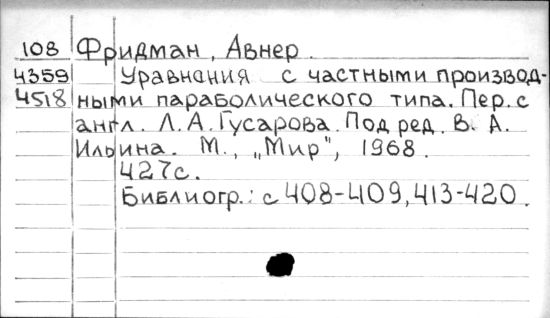 108 Фридман, Авнер.
4359 Уравнения с частными производ-
4518 ными параболического типа. Пер. с
англ. Л. А. Гусарова. Под ред. В. А.
Ильина. М., „Мир", 1968.
427с.
Библиогр.: с 408-409, 413-420.